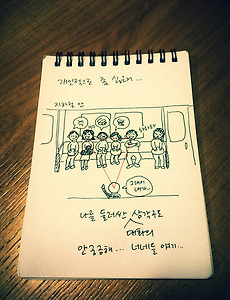 개인적으로 좀 싫어해...
지하철 안
나를 둘러싼 생각구도
대화의
안궁금해... 너네들 얘기...